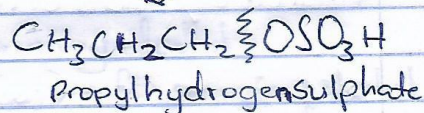 CH₃CH₂CH₂⸾OSO₃H
Propylhydrogensulphate